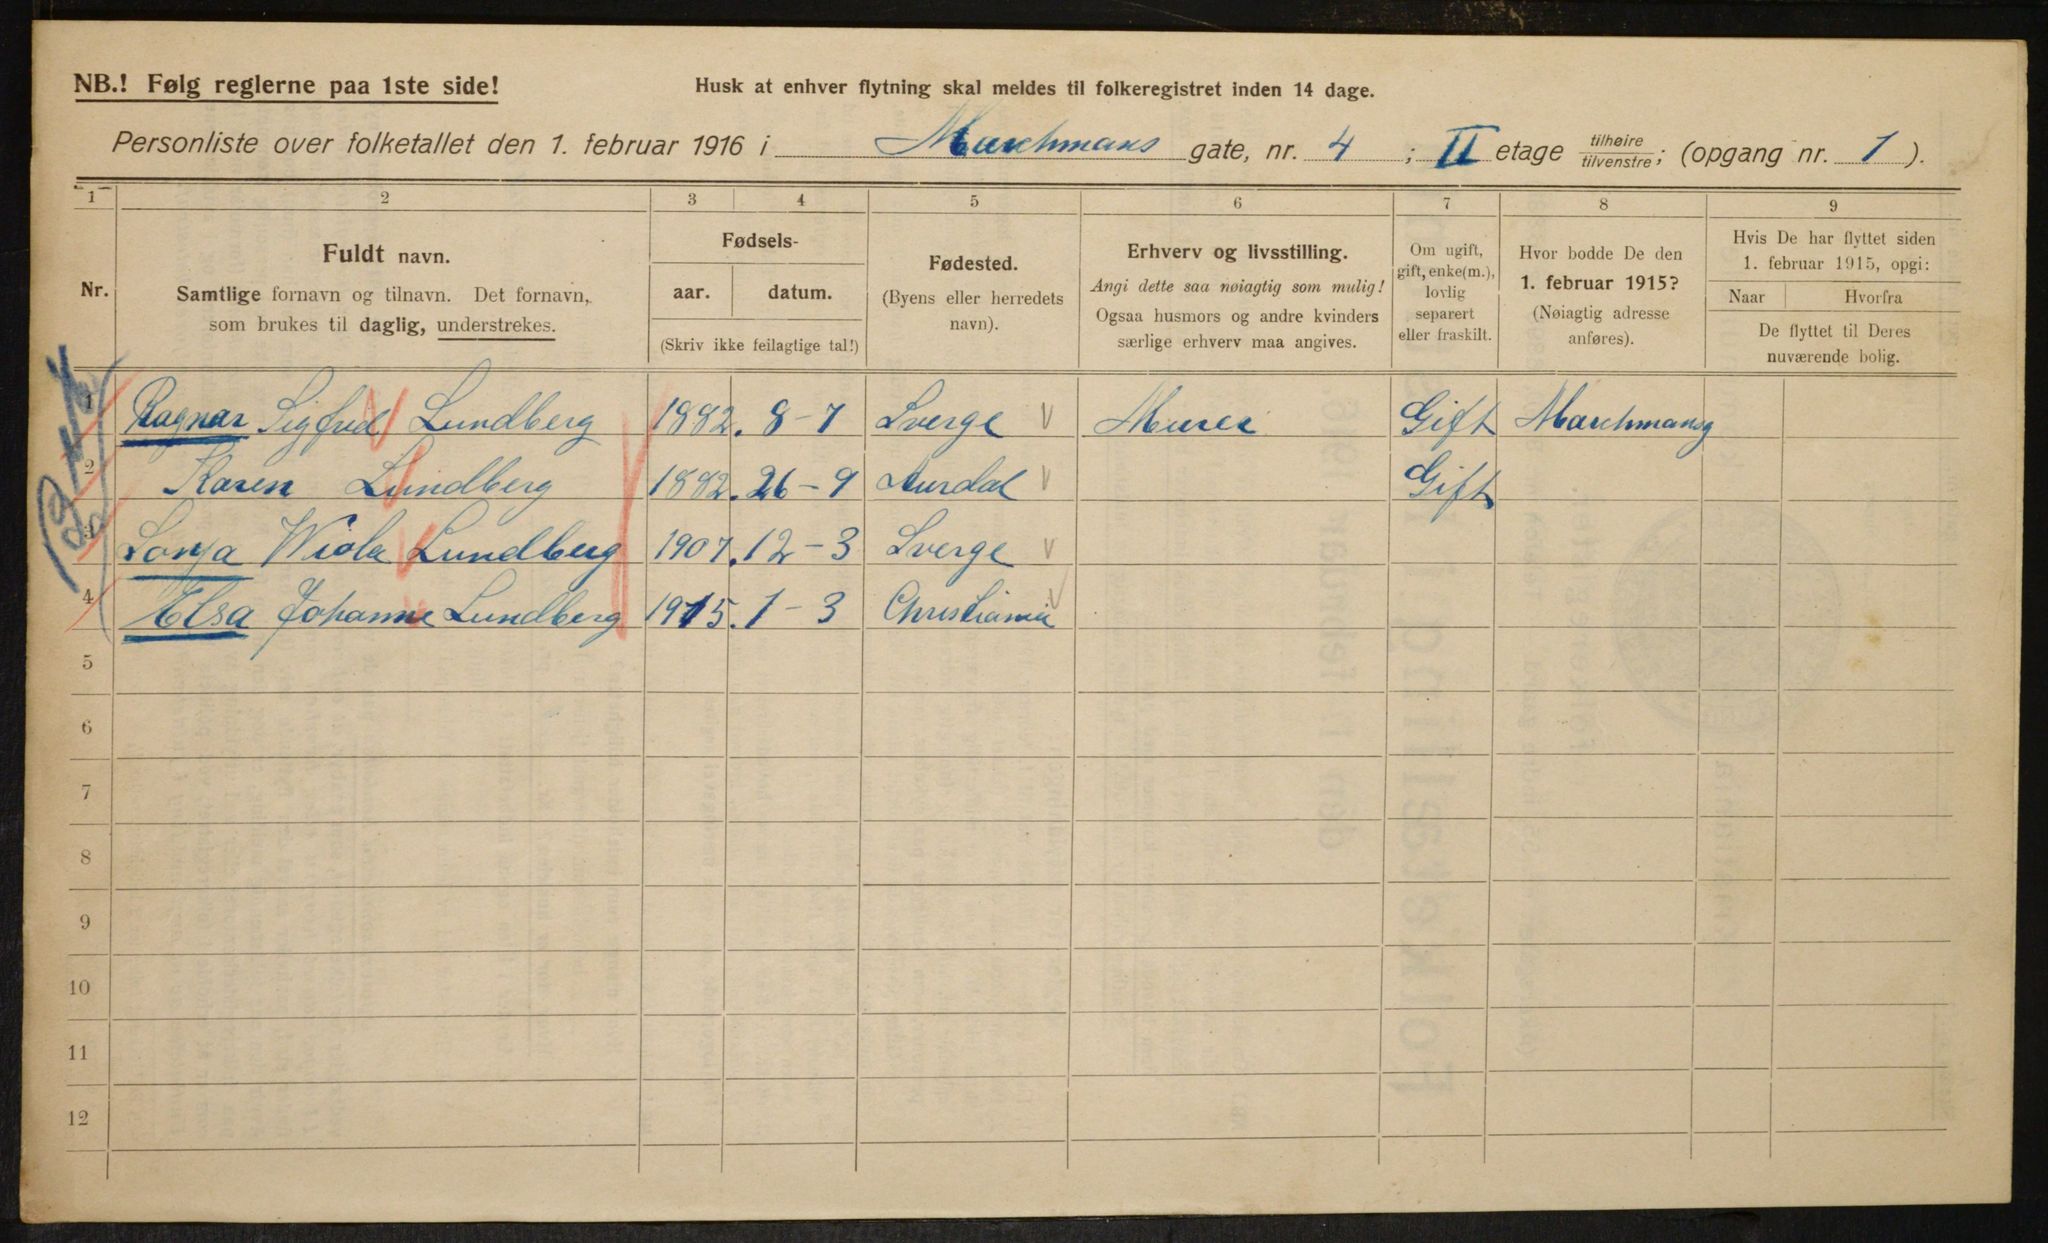 NB.! Følg reglerne paa 1ste side!
Husk at enhver flytning skal meldes til folkeregistret inden 14 dage.
Personliste over folketallet den 1. februar 1916 i Marchmans gate, nr. 4 ; II etage tilhøire tilvenstre; (opgang nr. 1 ).
1 2 3 4 5 6 7 8 9
Nr.
Fuldt navn.
Samtlige fornavn og tilnavn. Det fornavn,
som brukes til daglig, understrekes.
Fødsels-
aar. datum.
(Skriv ikke feilagtige tal!)
Fødested.
(Byens eller herredets
navn).
Erhverv og livsstilling.
Angi dette saa nøiagtig som mulig!
Ogsaa husmors og andre kvinders
særlige erhverv maa angives.
Om ugift,
gift, enke(m.),
lovlig
separert
eller fraskilt.
Hvor bodde De den
1. februar 1915?
(Nøiagtig adresse
anføres).
Hvis De har flyttet siden
1. februar 1915, opgi:
Naar Hvorfra
De flyttet til Deres
nuværende bolig.
1 Ragnar Sigfred Lundberg 1882. 8-7 Sverge Murer Gift Marchmansg
2 Karen Lundberg 1882. 26-9 Aurdal Gift
3 Sonja Wiola Lundberg 1907. 12-3 Sverge
4 Elsa Johanne Lundberg 1915. 1-3 Christiania
5
6
7
8
9
10
11
12